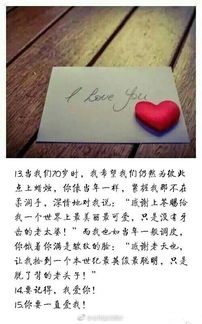 I Love You
13.当我们70岁时，我希望我们仍然为彼此
点上蜡烛，你像当年一样，紧握我那不在
柔润手，深情地对我说：“感谢上苍赐给
我一个世界上最美丽最可爱，只是没有牙
齿的老太婆！”而我也如当年一般调皮，
你抚着你满是皱纹的脸：“感谢老天也，
让我捡到一个本世纪最英俊最聪明，只是
脱了背的老头子！”
14.要记得，我爱你！
15.你要一直爱我！